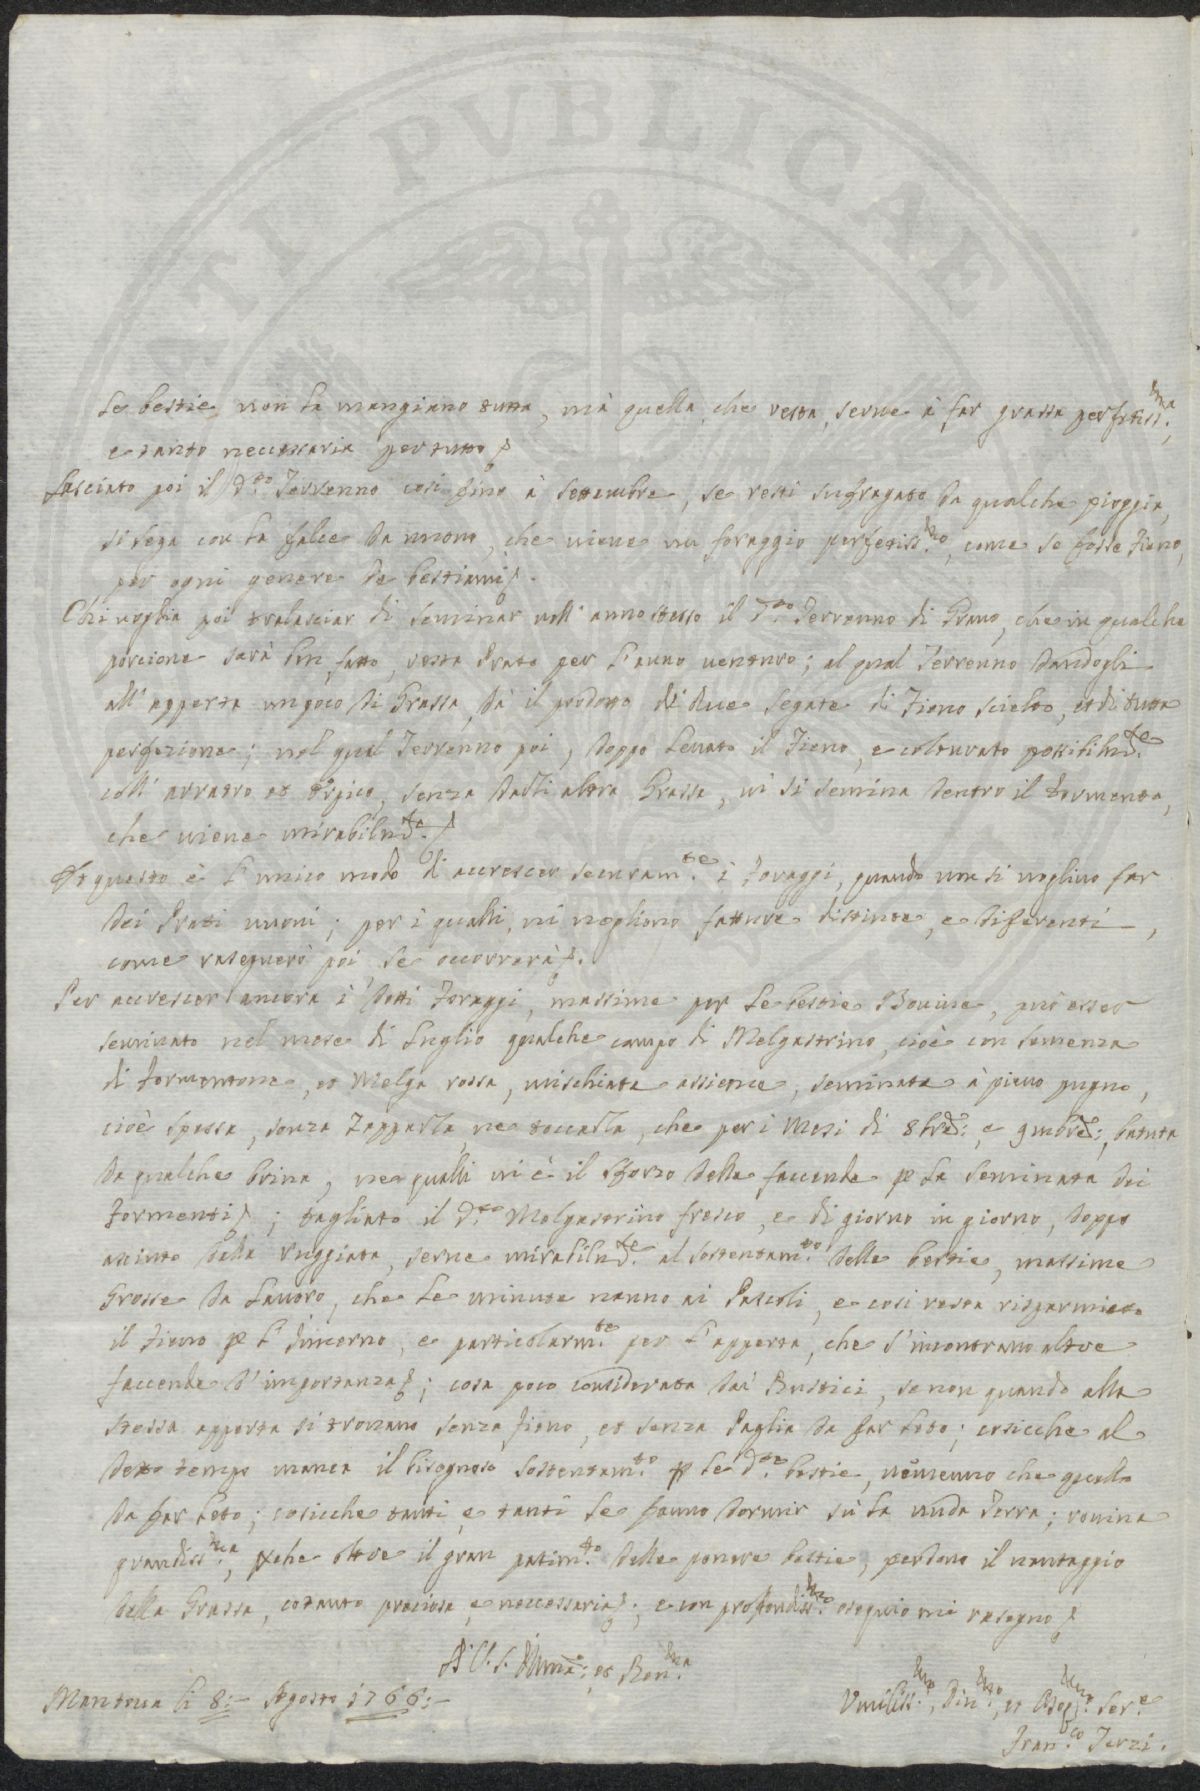 ATI PVBLICAE
le bestie non la mangiano tutta, mà quella, che resta, serue à far grassa perfetiss:ma,
e tanto necessaria per tutto;
Lasciato poi il d:to Terrenno così fino à Settembre, se resti sufragato da qualche pioggia,
si sega con la falce da nuouo, che uiene un foraggio perfetiss:mo, come se fosse Fieno,
per ogni genere de bestiami.
Chi voglia poi tralasciar di seminar nell'anno stesso il d:to Terrenno di Grano, che in qualche
porcione sarà ben fatto, resta Prato per l'anno uenturo; al qual Terrenno dandogli
all'apperta un poco di Grassa, dà il prodotto di due segate di Fieno scielto, et di tutta
perfezione; nel qual Terrenno poi, doppo leuato il Fieno, e colturato possibilm:te
coll'arratro et Erpice, senza darli altra Grassa, ui si semina dentro il Formento,
che uiene mirabilm:te.
Et questo è l'unico modo di accrescer securam:te i Foraggi, quando non si uogliono far
dei Prati nuoui; per i qualli, ui uogliono fatture distinte, e diferenti,
come rasegnerò poi, se occorrerà.
Per accrescer ancora i detti Foraggi, massime per le bestie Bouine, può esser
seminato nel mese di Luglio qualche campo di Melgastrino, cioè con semenza
di Formentone, et Melga rossa, mischiata assieme, seminata à pieno pugno,
cioè spessa, senza Zapparla, ne toccarla, che per i Mesi di 8bre: e 9mbre:, batuta
da qualche brina, ne qualli ui è il sforzo delle faccende p la seminata dei
Formenti; tagliato il d:to Melgastrino fresco, e di giorno in giorno, doppo
asciuto dalla ruggiata, serue mirabilm:te al sostentam:to delle bestie, massime
Grosse da Lauoro, che le minute uanno ai Pascoli, e così resta risparmiato
il Fieno p l'Inuerno, e particolarm:te per l'apperta, che s'incontrano altre
faccende d'importanza; cosa poco considerata dai Rustici, se non quando alla
stessa apperta si trouano senza Fieno, et senza Paglia da far Leto; cosicche al
detto tempo manca il bisognoso sostentam:to p le d:te bestie, nemeno che quella
da far Leto; cosicche tanti, e tanti le fanno dormir sù la nuda Terra; rouina
grandiss:ma, pche oltre il gran patim:to delle pouere bestie, perdono il uantaggio
della Grassa, cotanto preciosa, e neccessaria; e con profondiss:mo osequio mi rasegno
D. V. S. Illma: et Reu:ma
Mantoua li 8:- Agosto 1766:-
Vmiliss:mo, Diu:mo, et Oseq:mo Ser:e
Fran:co Terzi.